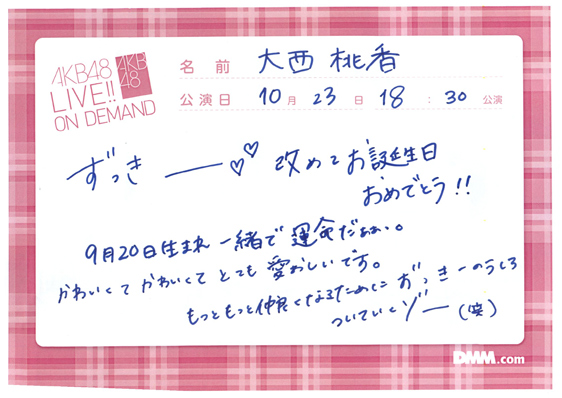 AKB48
LIVE!!
ON DEMAND
AKB
48
名前 大西 桃香
公演日 10月 23日 18:30 公演
ずっきー♡♡ 改めてお誕生日
おめでとう!!
9月20日生まれ 一緒で 運命だぁぁ。
かわいくて かわいくて とっても 愛おしいです。
もっともっと仲良くなるために ずっきーのうしろ
ついていくゾー(笑)
DMM.com